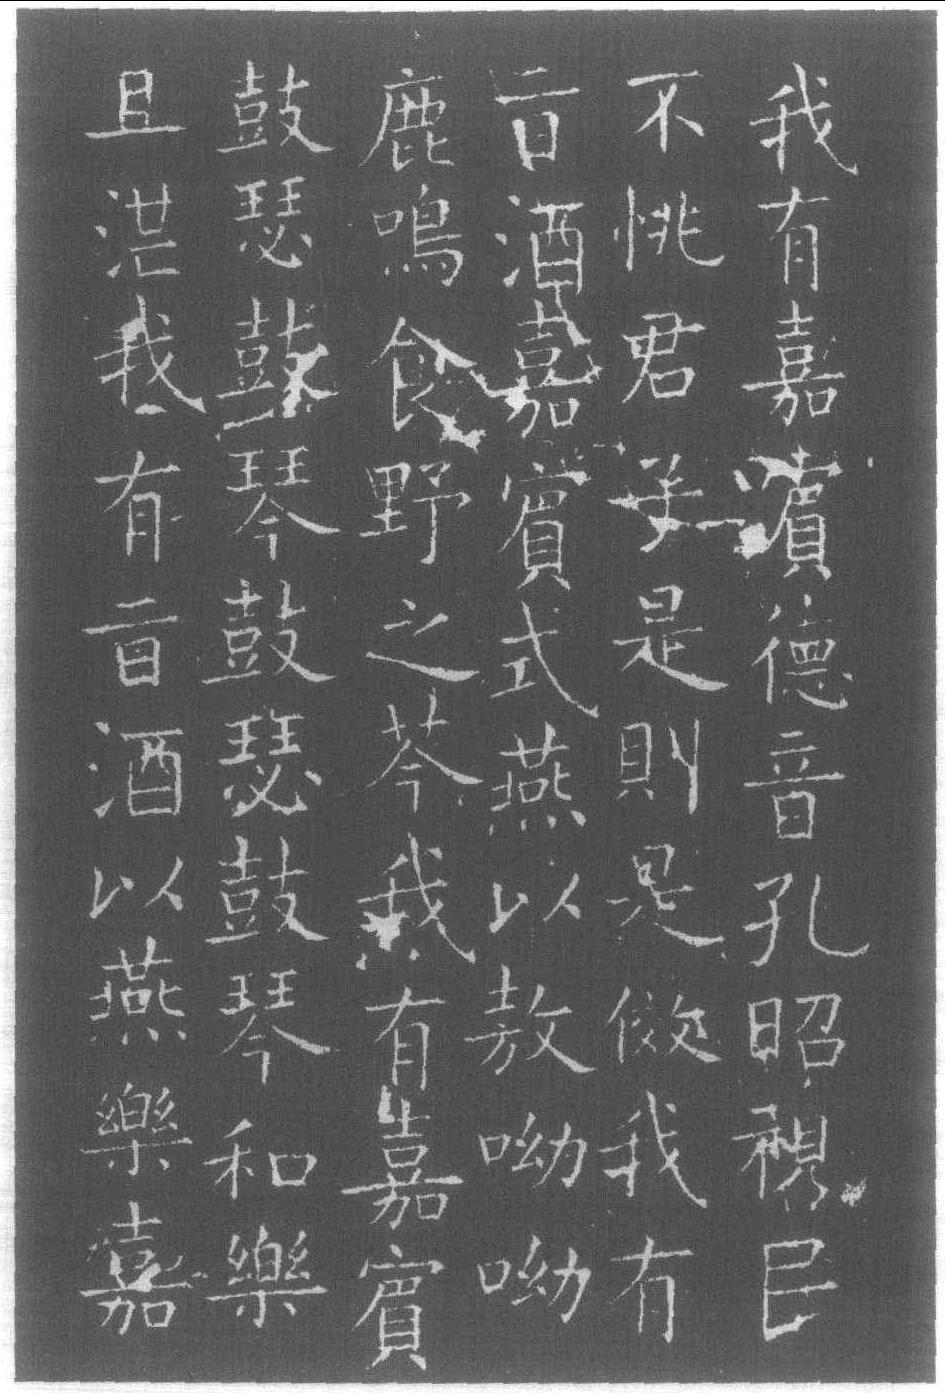 我有嘉賓德音孔昭視民
不恌君子是則是傚我有
旨酒嘉賓式燕以敖呦呦
鹿鳴食野之芩我有嘉賓
鼓瑟鼓琴鼓瑟鼓琴和樂
且湛我有旨酒以燕樂嘉